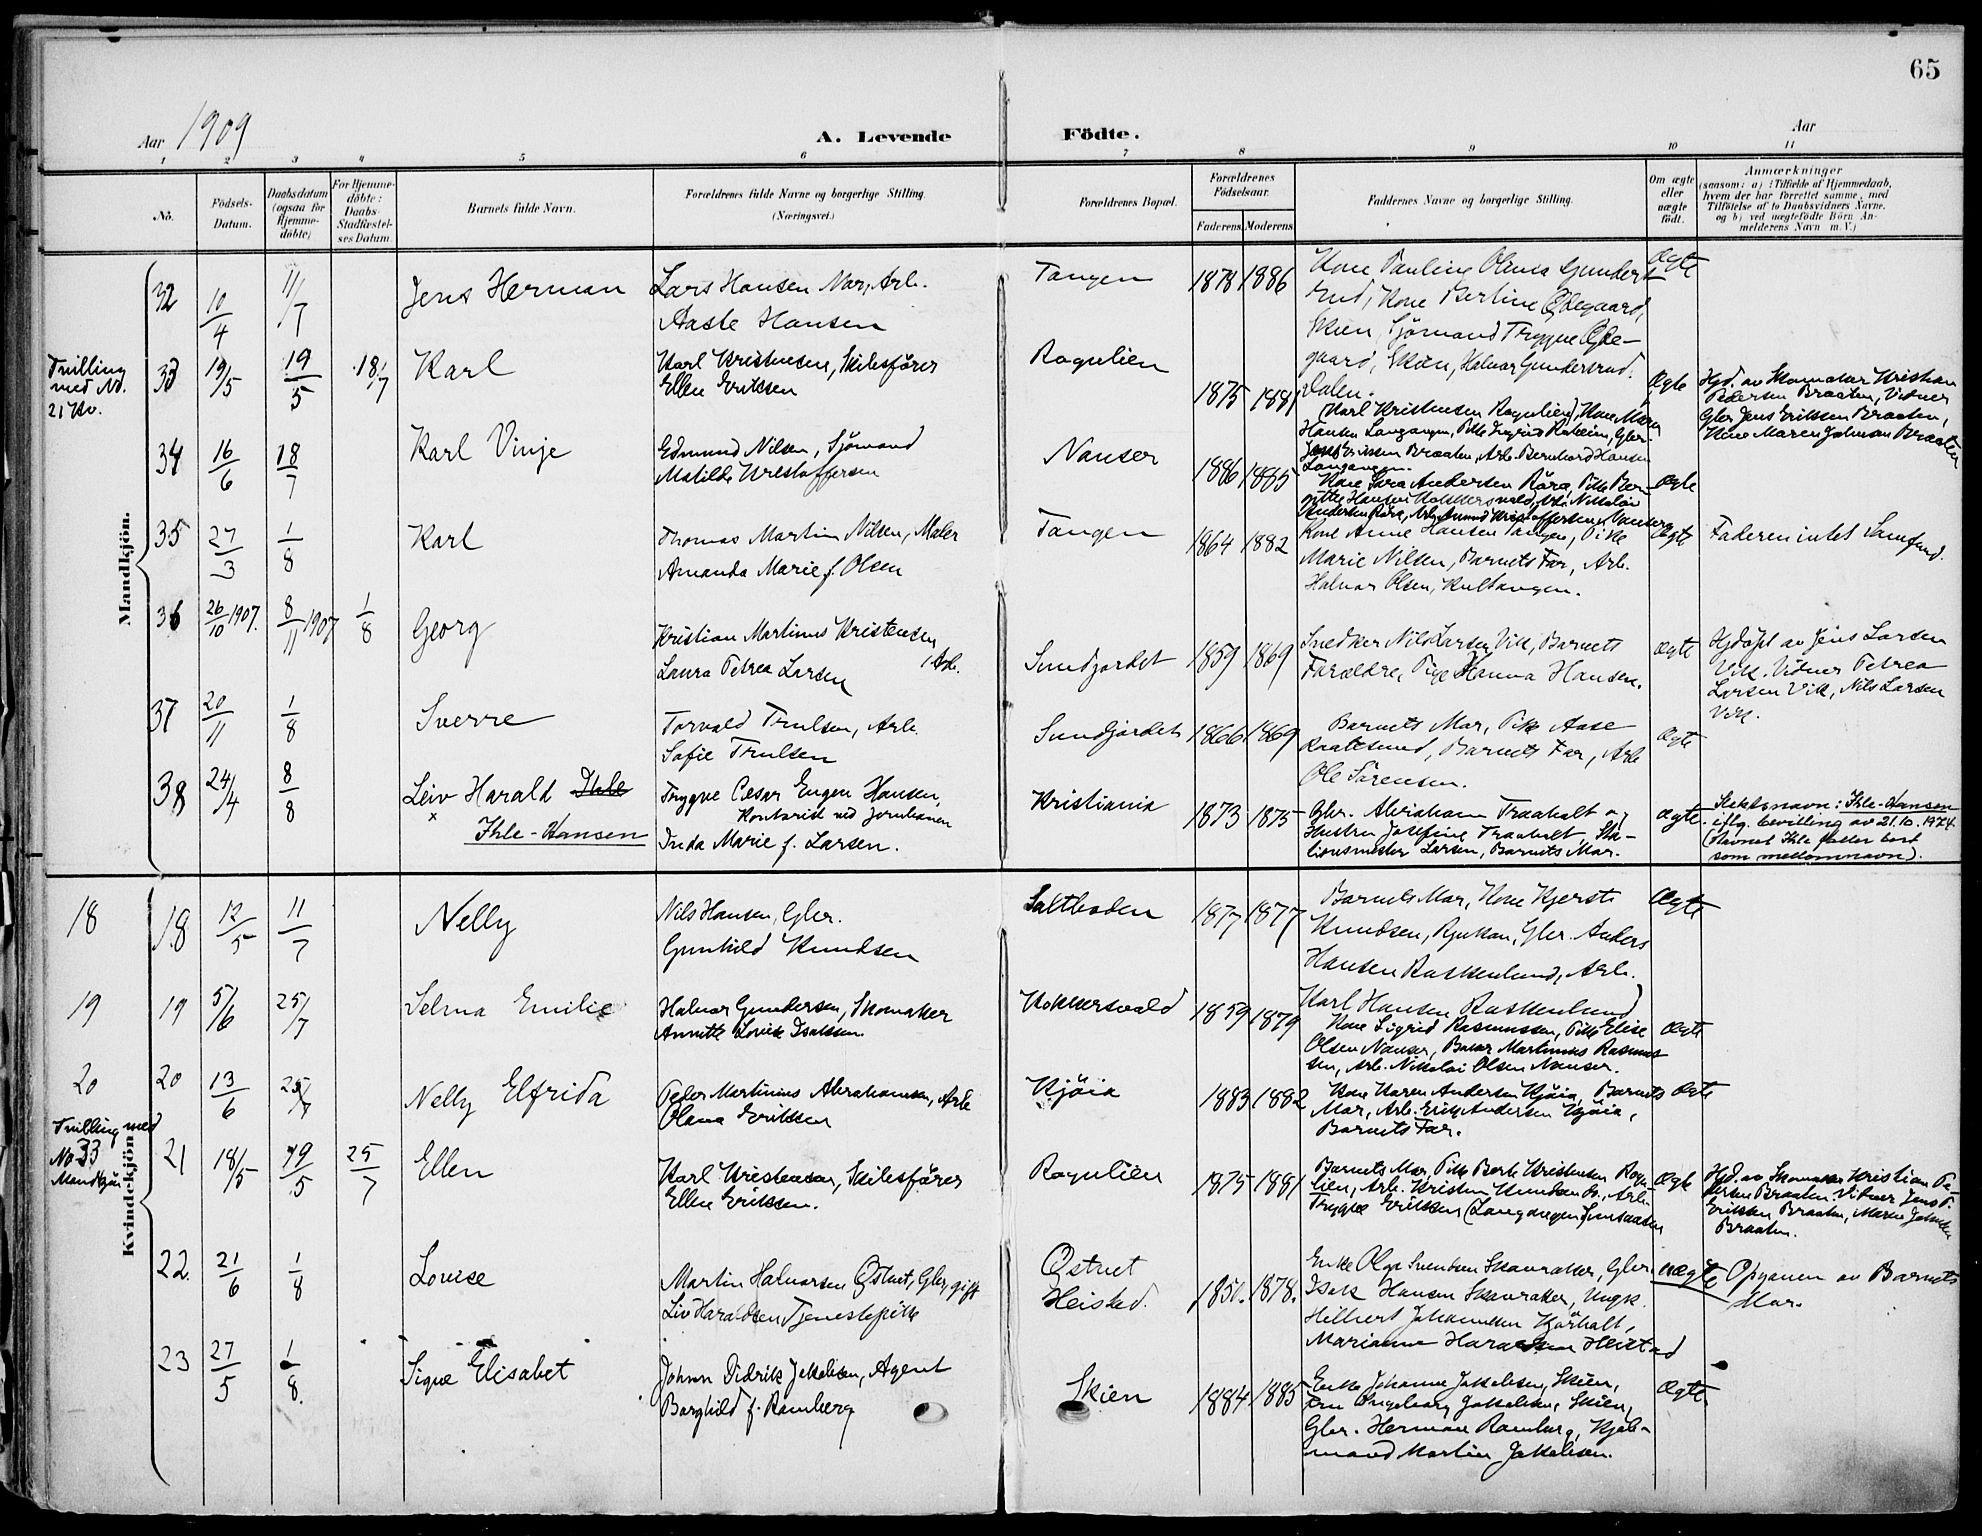 65
Aar 1909
A. Levende Födte.
Aar
1 2 3 4 5 6 7 8 9 10 11
No.
Födsels-Datum.
Daabsdatum (ogsaa for Hjemme-döbte)
For Hjemme-döbte: Daabs-Stadfæstel-ses Datum.
Barnets fulde Navn.
Forældrenes fulde Navne og borgerlige Stilling.
(Næringsvei.)
Forældrenes Bopæl.
Forældrenes Födselsaar.
Faderens. Moderens.
Faddernes Navne og borgerlige Stilling.
Om ægte eller uægte født.
Anmærkninger
(saasom: a) i Tilfælde af Hjemmedaab,
hvem der har forrettet samme, med
Tilföielse af to Daabsvidners Navne.
og b) ved uægtefödte Börn An-
melderens Navn m. V.)
Mandkjön.
32 10/4 11/7 Jens Herman
Lars Hansen Mar, Arb.
Aaste Hansen
Tangen 1878 1886
Kone Pauline Olensa Gundert-
rud, Kone Bertine Ødegaard,
Skien, Sjömand Trygve Øde-
gaard, Skien, Halvor Gundersrud.
Dalen.
Ægte
Tvilling
med No.
21 Kv.
33 19/5 19/5 18/7 Karl
Karl Kristensen, Skibsförer
Ellen Eriksen
Rognlien 1875 1881
Karl Kristensen Rognlien, Kone Maren
Hansen Langangen, Pike Ingrid
Jens Eriksen Braaten, Arb. Bernhard Hansen
Langangen.
Ægte
Hjd. av Skomaker Kristian
Pedersen Braaten, Vidner
Gbr Jens Eriksen Braaten,
Kone Maren Johnsen Braaten
34 16/6 18/7 Karl Vinje
Edmund Nilsen, Sjömand
Matilde Kristoffersen
Nanser 1886 1885
Kone Sara Andersen Röra, Pike Ber-
gitte Hansen Kokkersvold, Arb. Nikolai
Andersen Röra, Arb. Amund Kristoffersen, Vanberg
Ægte
35 27/3 1/8 Karl
Thomas Martin Nilsen, Maler
Amanda Marie f. Olsen
Tangen 1864 1882
Kone Anne Hansen Tangen, Pike
Marie Nilsen, Barnets Far, Arb.
Halvor Olsen, Kultangen.
Ægte
Faderen intet Samfund.
36 26/10 1907. 8/11 1907 1/8 Georg
Kristian Martinus Kristensen
, Arb.
Laura Petrea Larsen
Sundjordet 1859 1869
Snedker Nils Larsen Vik, Barnets
Forældre, Pige Hanna Hansen.
Ægte
Hjdöpt av Jens Larsen
Vik. Vidner Petrea
Larsen Vik, Nils Larsen
Vik.
37 20/11 1/8 Sverre
Torvald Trulsen, Arb.
Sofie Trulsen
Sundjordet 1866 1869
Barnets Mor, Pike Aase
Barnets Far, Arb
Ole Sörensen.
Ægte
38 24/4 8/8 Leiv Harald Ihle
x Ihle-Hansen
Trygve Cæsar Eugen Hansen,
Kontorist ved Jernbanen
Inda Marie f. Larsen.
Kristiania 1873 1875
Gbr. Abraham Traaholt og
Hustru Josefine Traaholt, Sta-
tionsmester Larsen, Barnets Mor.
Ægte.
Slektsnavn: Ihle-Hansen
iflg. bevilling av 21.10.1924.
(Navnet Ihle faller bort
som mellomnavn).
Kvindekjön
18 18 12/5 11/7 Nelly
Nils Hansen, Gbr.
Gunhild Knudsen
Saltboden 1877 1877
Barnets Mor, Kone Kjersti
Knudsen, Rjukan, Gbr. Anders
Hansen Rakkenlund, Arb.
Karl Hansen Rakkenlund
Ægte
19 19 5/6 25/7 Selma Emilie
Halvor Gundersen, Skomaker
Annette Lovise Isaksen
Kokkersvold 1859 1879
Kone Sigrid Rasmussen, Pike Elise
Olsen Nanser, Baker Martinius Rasmus-
sen, Arb. Nikolai Olsen Nanser.
Ægte
20 20 13/6 25/7 Nelly Elfrida
Peter Martinius Abrahamsen, Arb
Olava Eriksen
Kjöia 1883 1882
Kone Karen Andersen Kjöia, Barnets
Mor, Arb. Erik Andersen Kjöia,
Barnets Far.
Ægte
Tvilling med
No 33
Mandkjön
21 18/5 19/5 25/7 Ellen
Karl Kristensen, Skibsförer
Ellen Eriksen.
Rognlien 1875 1881
Barnets Mor, Pike Berte Kristensen Rogn-
lien, Arb. Kristen Knudsen Arb.
Trygve Eriksen (Langangen)
Ægte
Hjd. av Skomaker Kristian Pe-
dersen Braaten. Vidner Jens P.
Eriksen Braaten, Maren Johnsen
Braaten.
22. 21/6 1/8 Louise
Martin Halvorsen Östvet, Gbr, gift
Liv Haraldsen Tjenestepike
Östvet
Heistad. 1850. 1878.
Enke Olga Svendsen Skavraker, Gbr.
Isak Hansen Skavraker, Ungk.
Hilbert Johannesen Kjörholt,
Marianne Haraldsen Heistad
uægte
Opgaven av Barnets
Mor.
23 27/5 1/8. Signe Elisabet
Johan Didrik Jakobsen, Agent
Borghild f. Ramberg
Skien 1884 1885
Enke Johanne Jakobsen, Skien,
Frn Ingeborg Jakobsen, Skien,
Gbr. Herman Ramberg, Kjöb-
mand Martin Jakobsen.
Ægte